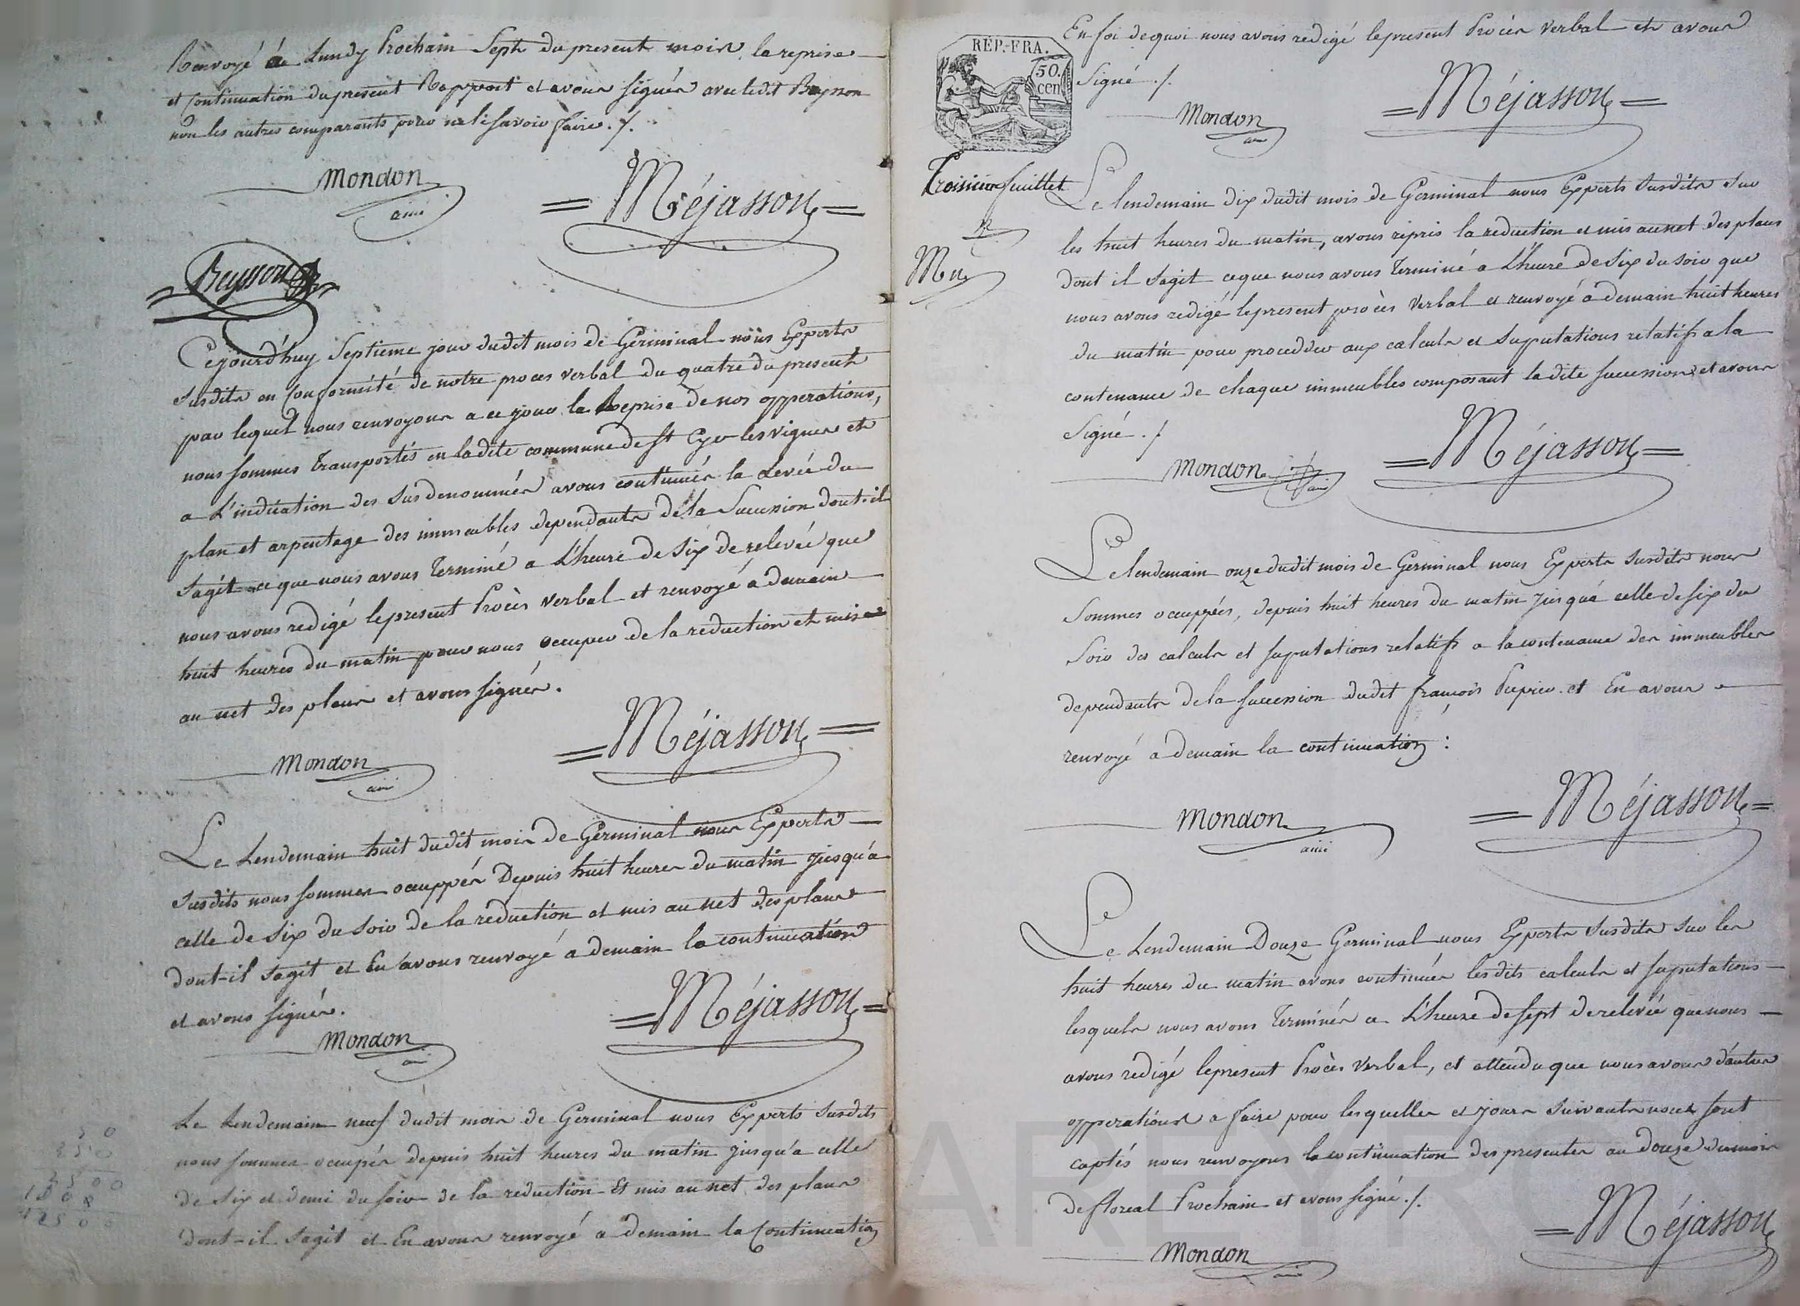 Renvoyé à Lundy Prochain Sept du present mois la reprise
et Continuation du present Rapport et avons signés avec ledit Reysson
non les autres comparants pour ne le savoir faire ./.
Mondon
ainé
= Méjasson =
Reysson
Cejourd'huy Septieme jour dudit mois de Germinal nous Experts
susdits en Conformité de notre proces verbal du quatre du present
par lequel nous renvoyons a ce jour la Reprise de nos opperations,
nous sommes Transportés en ladite commune de St Cyr les vignes et
a L'indication des susdenommés avons continués la Levée du
plan et arpentage des immeubles dependants de la Succession dont-il
s'agit ce que nous avons Terminé a L'heure de Six de relevée que
nous avons redigé le present Procès verbal et renvoyé a demain
huit heures du matin pour nous occuper de la reduction et mis
au net des plans et avons signés.
= Méjasson =
Mondon
ainé
Le Lendemain huit dudit mois de Germinal nous Experts
susdits nous sommes occuppés Depuis huit heures du matin jusqu'a
celle de Six du Soir de la reduction et mis au net des plans
dont-il s'agit et En avons renvoyé a demain la continuation
et avons signés.
= Méjasson =
Mondon
ainé
Le Lendemain neuf dudit mois de Germinal nous Experts susdits
nous sommes occupés depuis huit heures du matin jusqu'a celle
de Six et demi du soir de la reduction Et mis au net des plans
dont-il s'agit et En avons renvoyé a demain la Continuation
REP.-FRA.
50.
cen.
Troisieme feuillet
En foi de quoi nous avons redigé le present Procès verbal et avons
Signé ./.
Mondon
ainé
= Méjasson =
Le lendemain dix dudit mois de Germinal nous Experts susdits sur
les huit heures du matin, avons repris la reduction et mis au net des plans
dont il s'agit ce que nous avons Terminé a L'heure de Six du soir que
nous avons redigé le present procès verbal et renvoyé a demain huit heures
du matin pour proceder aux calculs et suputations relatifs a la
contenance de chaque immeubles composant la dite succession, et avons
Signé ./
Mondon
ainé
= Méjasson =
Le lendemain onze dudit mois de Germinal nous Experts susdits nous
sommes occuppés, depuis huit heures du matin jusqu'a celle de six du
Soir des calculs et suputations relatifs a la contenance des immeubles
dependants de la succession dudit françois Pupier et En avons
renvoyé a demain la continuation :
= Méjasson =
Mondon
ainé
Le Lendemain Douze Germinal nous Experts susdits sur les
huit heures du matin avons continués lesdits calculs et suputations
lesquels nous avons Terminés a L'heure de sept de relevée que nous
avons redigé le present Procès verbal, et attendu que nous avons d'autres
opperations a faire pour lesquelles et jours suivants nous sont
captés nous renvoyons la continuation des presentes au douze du mois
de floreal Prochain et avons signé ./.
= Méjasson
Mondon
ainé